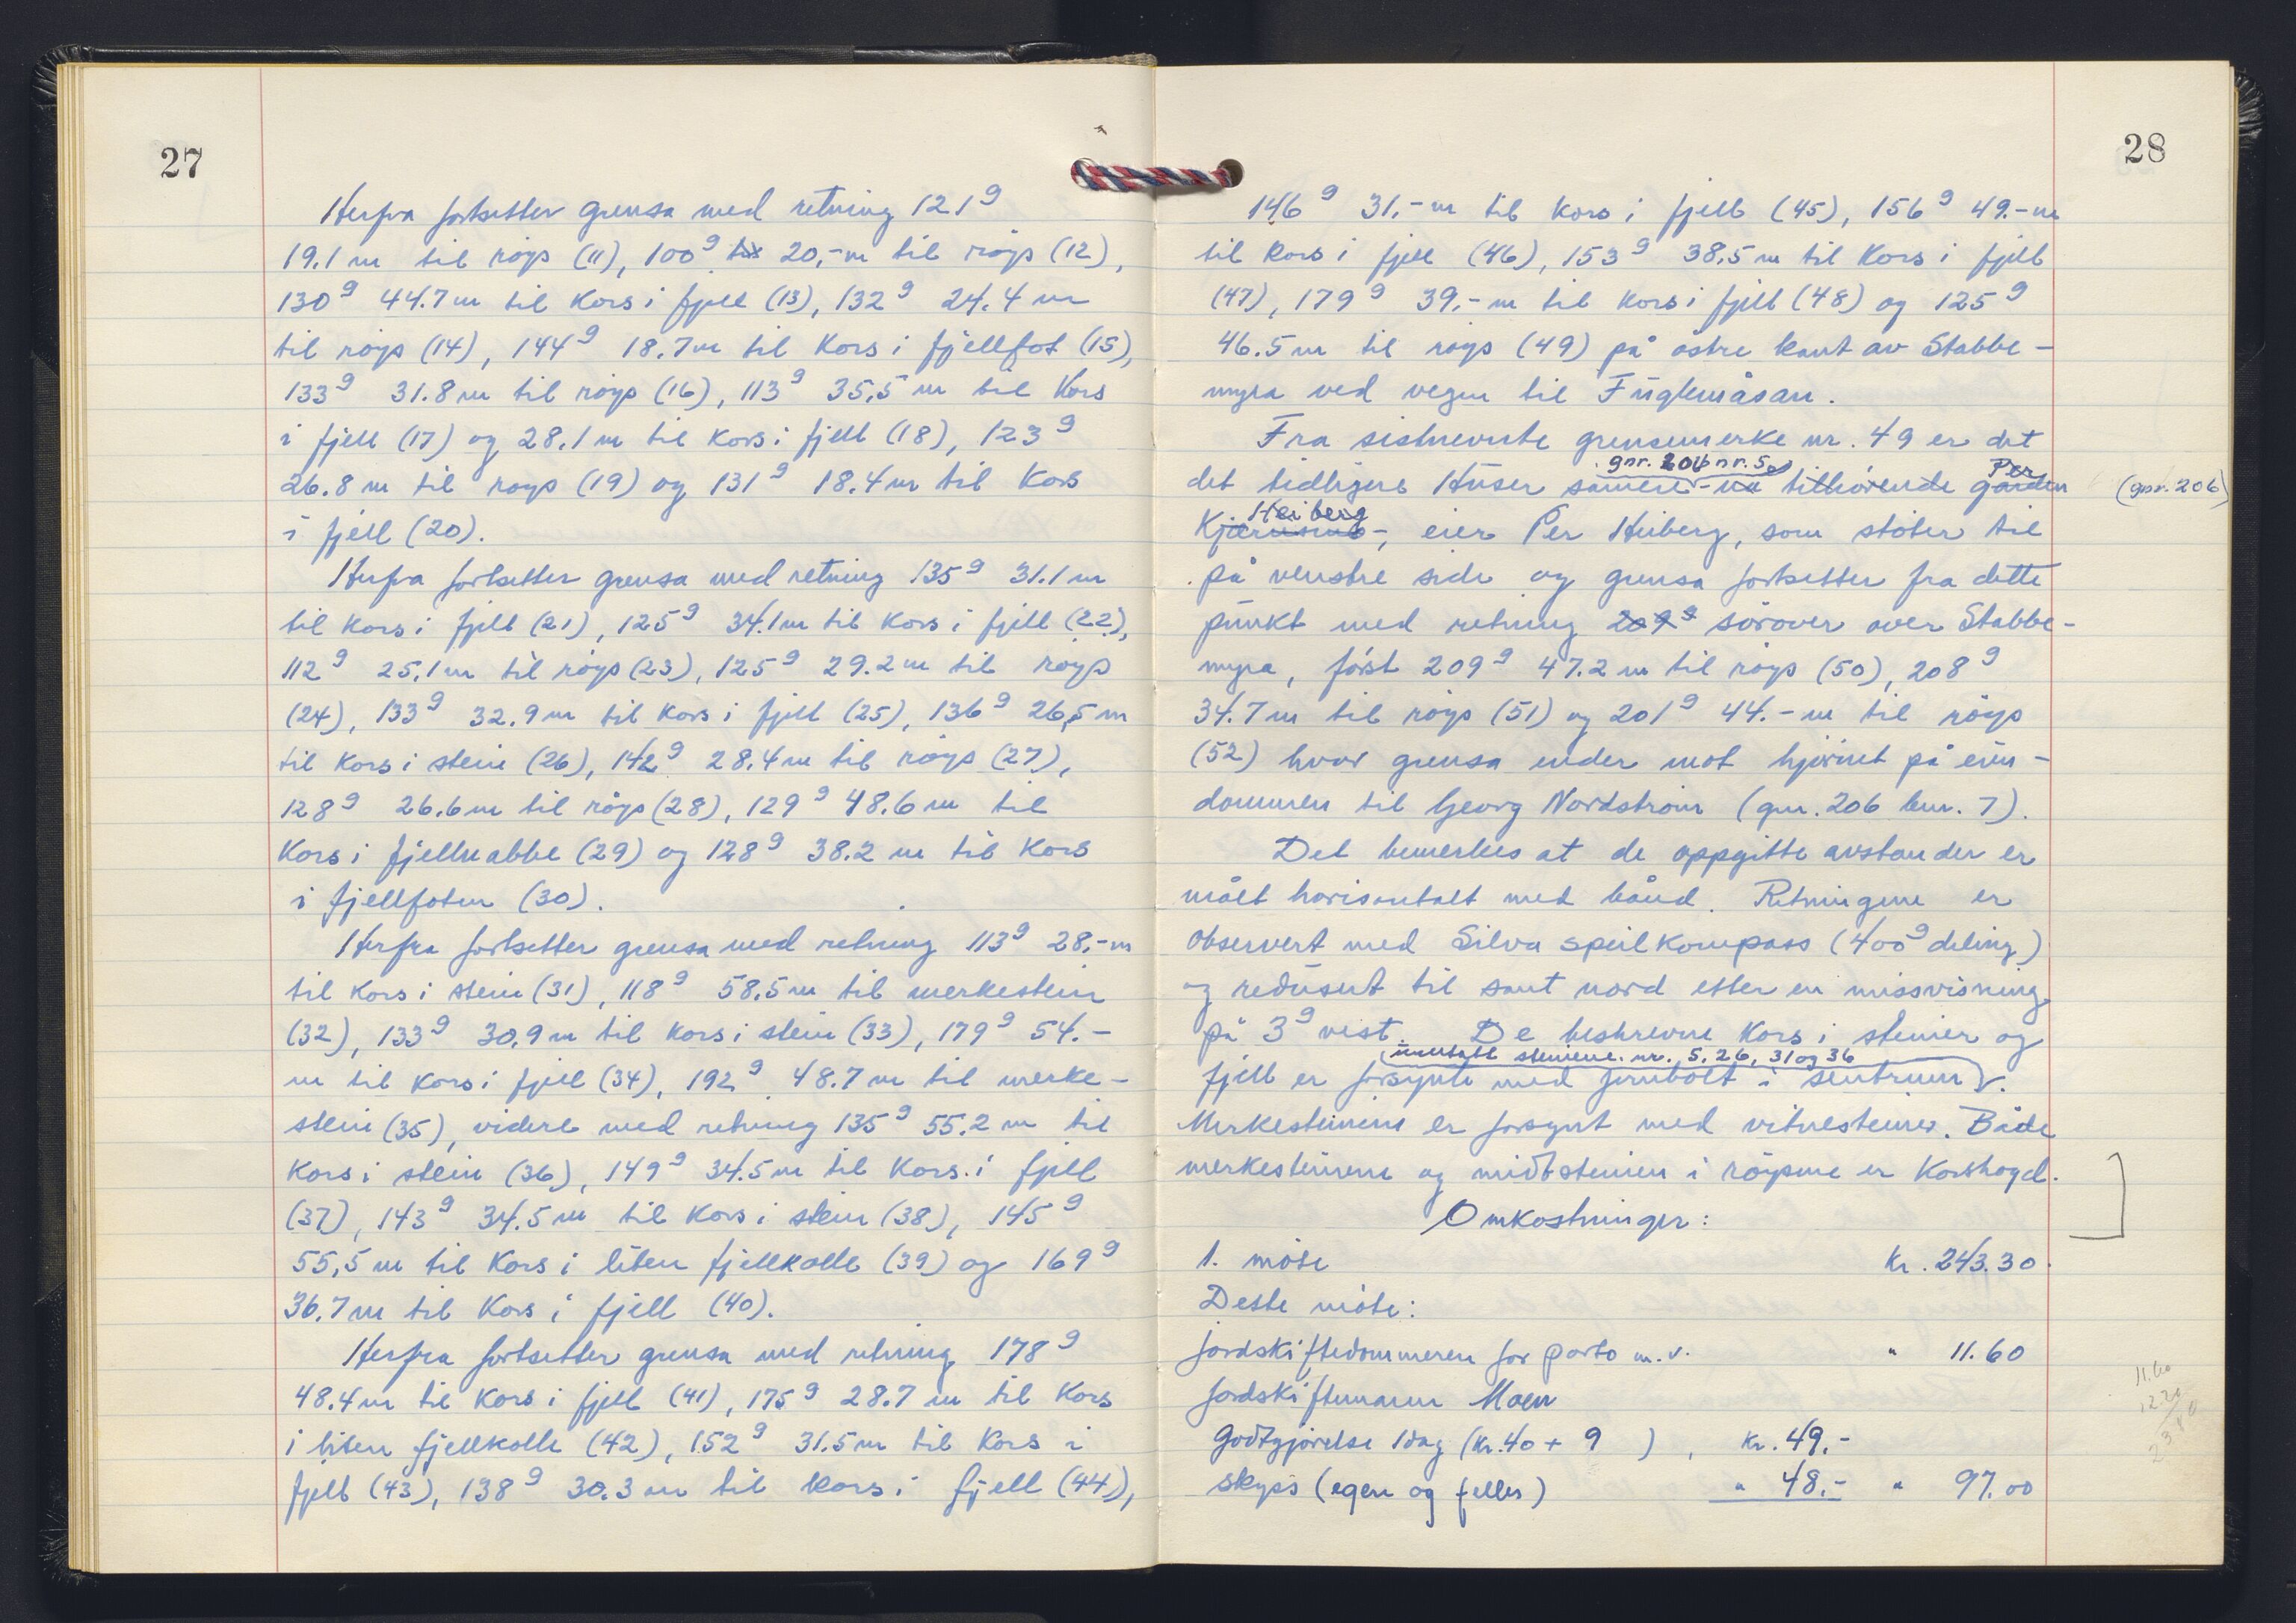 27
Herfra fortsetter grensa med retning 121g
19.1 m til röys (11), 100g til 20,- m til röys (12),
130g 44.7 m til kors i fjell (13), 132g 24.4 m
til röys (14), 144g 18.7 m til kors i fjellfot (15),
133g 31.8 m til röys (16), 113g 35,5 m til kors
i fjell (17) og 28.1 m til kors i fjell (18), 123g
26.8 m til röys (19) og 131g 18.4 m til kors
i fjell (20).
Herfra fortsetter grensa med retning 135g 31.1 m
til kors i fjell (21), 125g 34.1 m til kors i fjell (22),
112g 25,1 m til röys (23), 125g 29.2 m til röys
(24), 133g 32.9 m til kors i fjell (25), 136g 26,5 m
til kors i stein (26), 142g 28.4 m til röys (27),
128g 26.6 m til röys (28), 129g 48.6 m til
kors i fjellnabbe (29) og 128g 38.2 m til kors
i fjellfoten (30).
Herfra fortsetter grensa med retning 113g 28,- m
til kors i stein (31), 118g 58.5 m til merkestein
(32), 133g 30.9 m til kors i stein (33), 179g 54.-
m til kors i fjell (34), 192g 48.7 m til merke-
stein (35), videre med retning 135g 55.2 m til
kors i stein (36), 149g 34.5 m til kors i fjell
(37), 143g 34.5 m til kors i stein (38), 145g
55,5 m til kors i liten fjellkolle (39) og 169g
36.7 m til kors i fjell (40).
Herfra fortsetter grensa med retning 178g
48.4 m til kors i fjell (41), 175g 28.7 m til kors
i liten fjellkolle (42), 152g 31.5 m til kors i
fjell (43), 138g 30.3 m til kors i fjell (44),
28
146g 31,- m til kors i fjell (45), 156g 49.- m
til kors i fjell (46), 153g 38,5 m til kors i fjell
(47), 179g 39.- m til kors i fjell (48) og 125g
46.5 m til röys (49) på östre kant av Stabbe-
myra ved vegen til Fuglemåsan.
Fra sistnevnte grensemerke nr. 49 er det
gnr. 206 bnr. 5 Per
det tidligere Huser sameie - nå tilhörende gården (gnr. 206)
Heiberg
Kjærnsmo -, eier Per Heiberg, som stöter til
på venstre side og grensa fortsetter fra dette
punkt med retning 209g sörover over Stabbe-
myra, först 209g 47.2 m til röys (50), 208g
34.7 m til röys (51) og 201g 44.- m til röys
(52) hvor grensa ender mot hjörnet på eien-
dommen til Georg Nordström (gnr. 206 bnr. 7).
Det bemerkes at de oppgitte avstander er
målt horisontalt med bånd. Retningene er
observert med Silva speilkompass (400g deling)
og redusert til sant nord etter en missvisning
på 3g vest. De beskrevne kors i steiner og
(unntatt steinene nr. 5, 26, 31 og 36
fjell er forsynt med jernbolt i sentrum).
Merkesteinene er forsynt med vitnesteiner. Både
merkesteinene og midtsteinen i röysene er korshogd.
Omkostninger:
1. möte kr. 243.30
Dette möte:
Jordskiftedommeren for porto m.v. " 11.60
Jordskiftemann Moen
Godtgjörelse 1 dag (kr. 40 + 9 ), kr. 49.-
skyss (egen og felles) " 48.- " 97.00
11.60